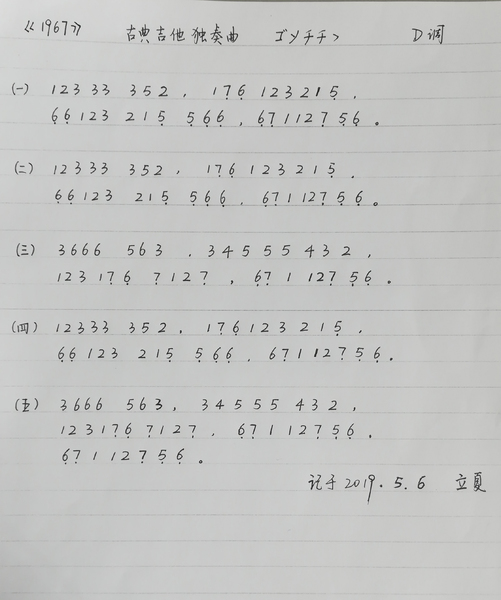 《1967》 古典吉他独奏曲 ゴンチチ D调
(一) 12333 352, 17̣6̣ 123215̣,
6̣6̣123 215̣ 5̣6̣6̣, 6̣7̣1127̣5̣6̣。
(二) 12333 352, 17̣6̣ 123215̣,
6̣6̣123 215̣ 5̣6̣6̣, 6̣7̣1127̣5̣6̣。
(三) 3666 563, 34555432,
12317̣6̣ 7̣127̣, 6̣7̣1127̣5̣6̣。
(四) 12333 352, 17̣6̣123215̣,
6̣6̣123 215̣ 5̣6̣6̣, 6̣7̣1127̣5̣6̣。
(五) 3666 563, 34555432,
12317̣6̣7̣127̣, 6̣7̣1127̣5̣6̣,
6̣7̣1127̣5̣6̣。
记于2019.5.6 立夏